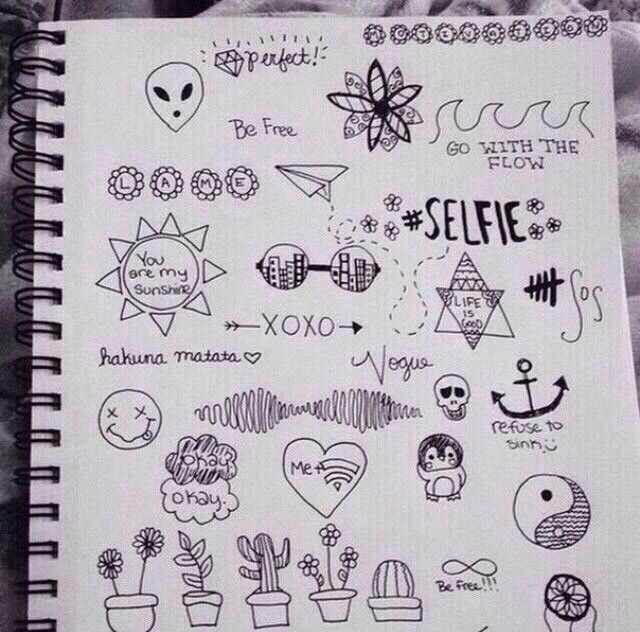 perfect!
MOTIVATION
Be Free
GO WITH THE
FLOW
LAME
#SELFIE
You
are my
sunshine
LIFE
IS
GOOD
SOS
XOXO
hakuna matata
Vogue
refuse to
sink
okay
okay.
Me +
Be free!!!